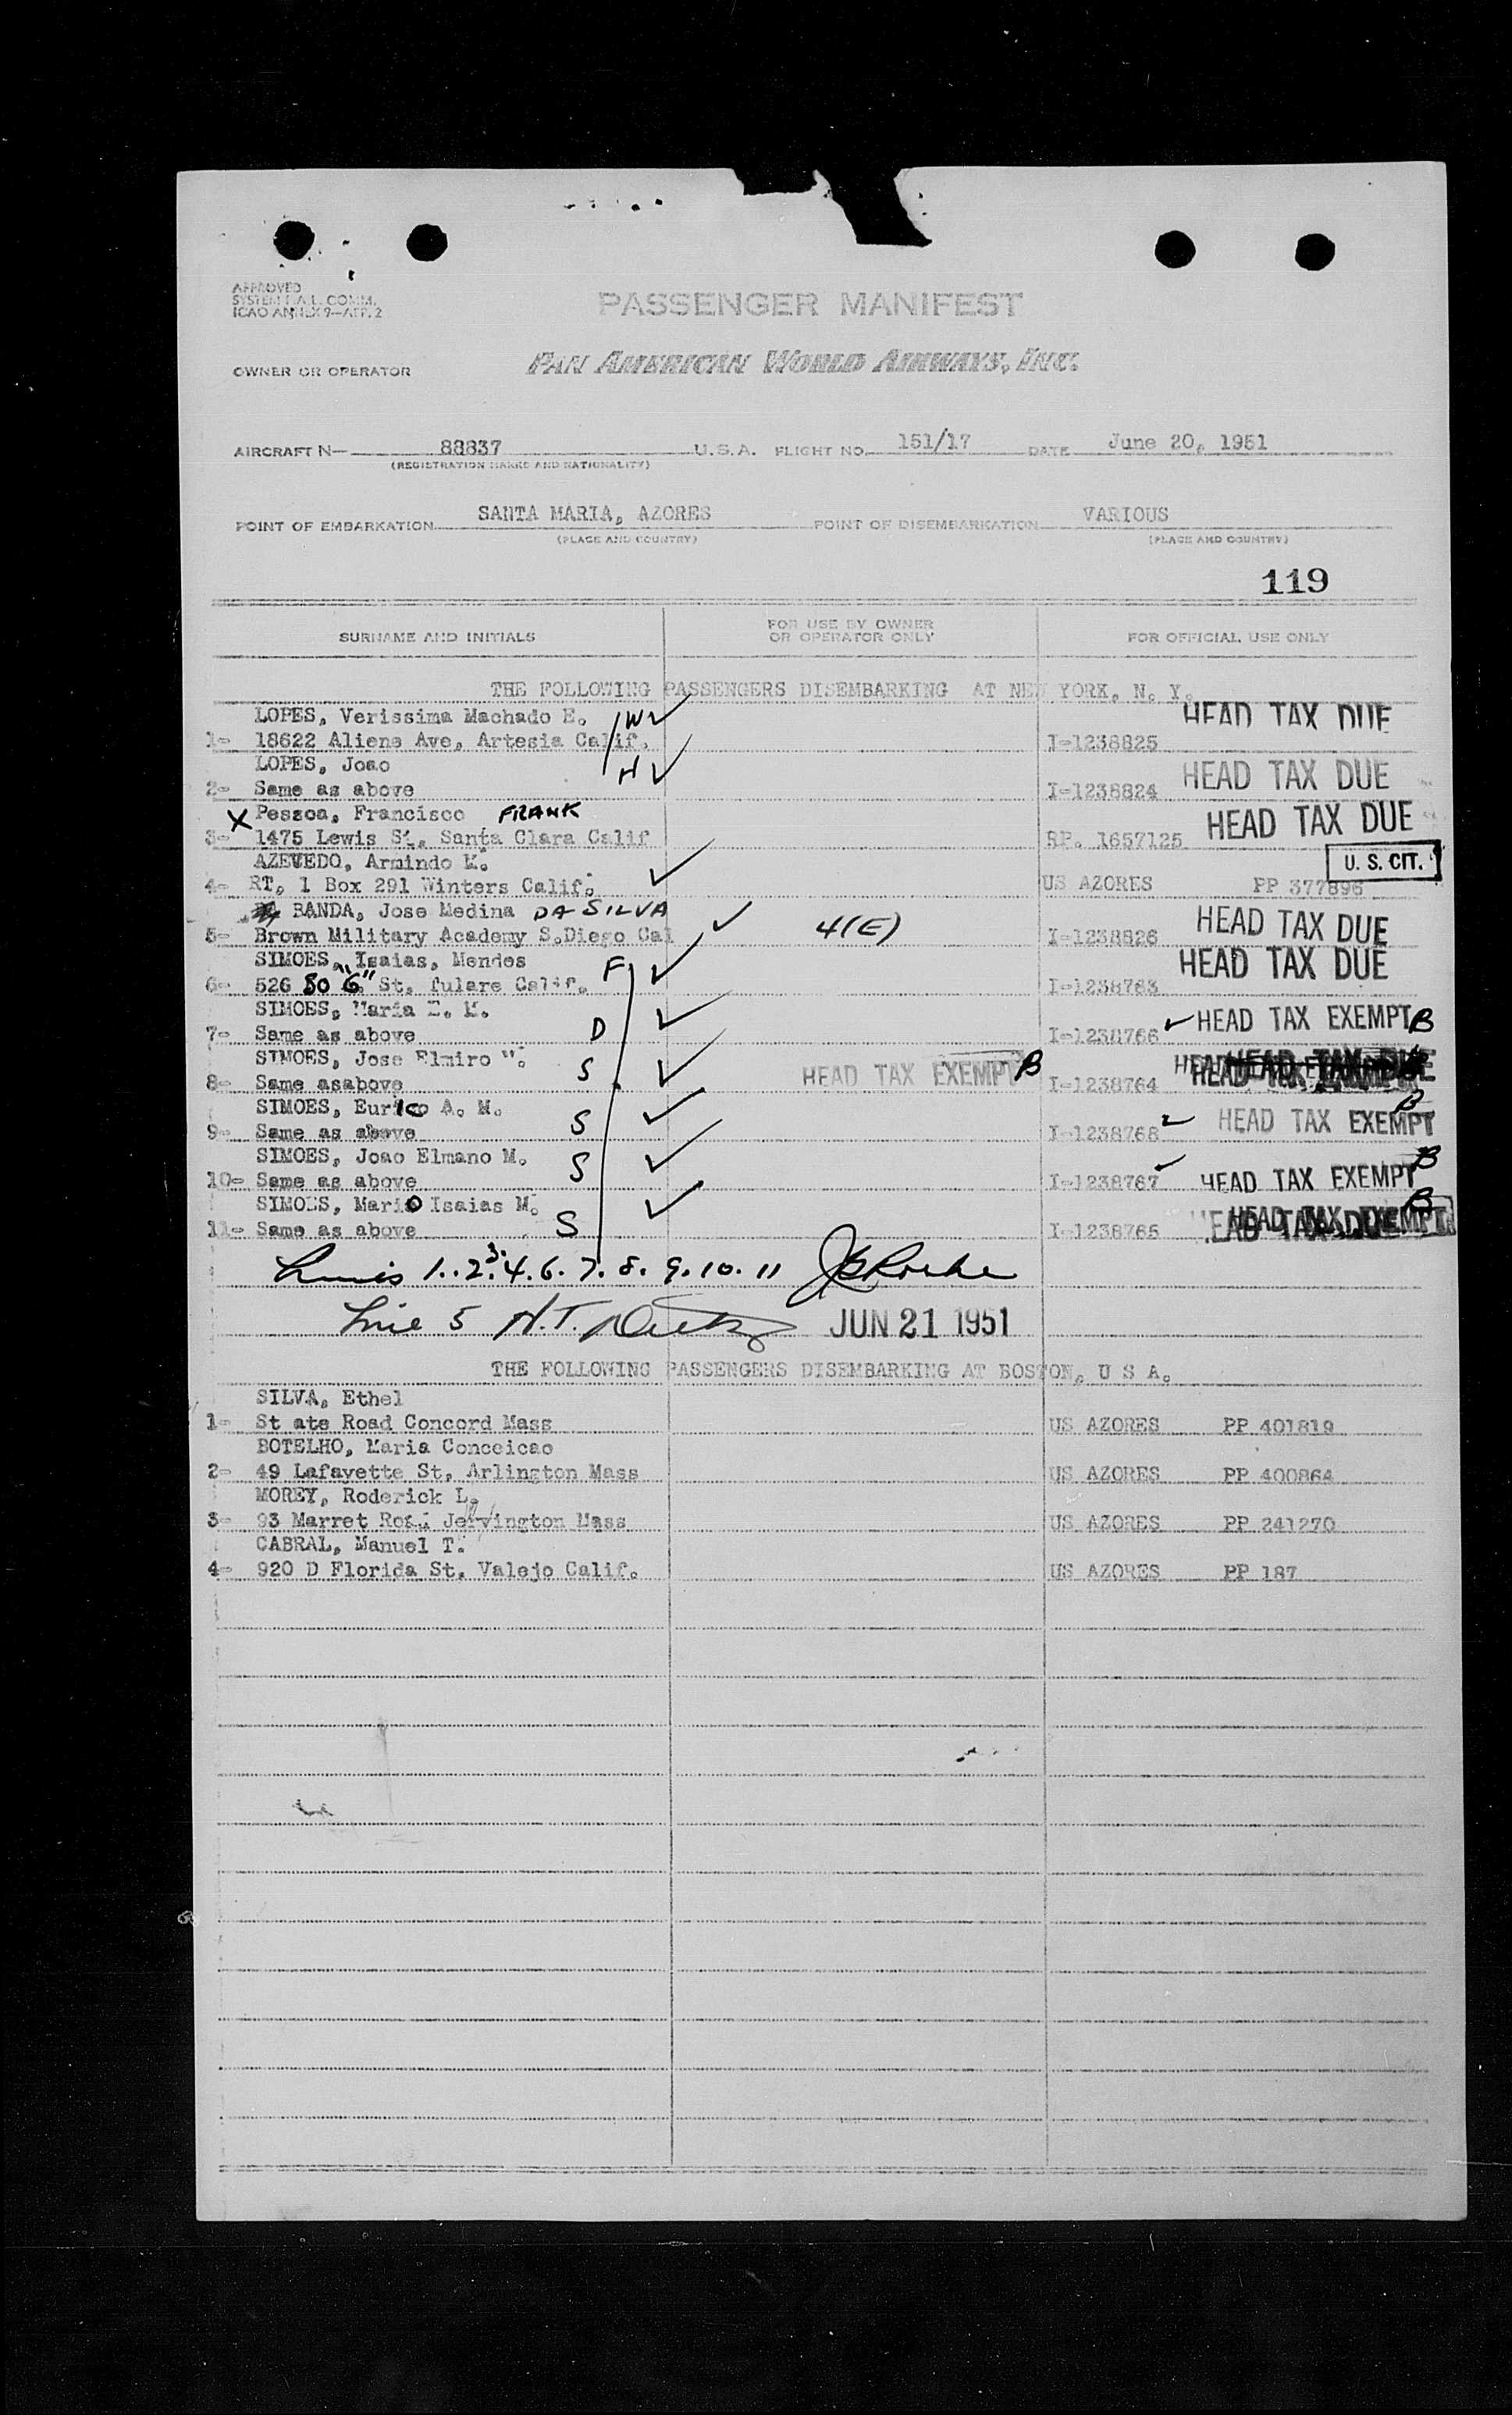 APPROVED
SYSTEM N.A.L. COMM.
ICAO ANNEX 9—APP. 2
PASSENGER MANIFEST
OWNER OR OPERATOR PAN AMERICAN WORLD AIRWAYS, INC.
AIRCRAFT N— 88837 U.S.A. FLIGHT NO. 151/17 DATE June 20, 1951
(REGISTRATION MARKS AND NATIONALITY)
POINT OF EMBARKATION SANTA MARIA, AZORES POINT OF DISEMBARKATION VARIOUS
(PLACE AND COUNTRY) (PLACE AND COUNTRY)
119
SURNAME AND INITIALS FOR USE BY OWNER OR OPERATOR ONLY FOR OFFICIAL USE ONLY
THE FOLLOWING PASSENGERS DISEMBARKING AT NEW YORK, N. Y.
LOPES, Verissima Machado E. W ✓ HEAD TAX DUE
1- 18622 Aliens Ave, Artesia Calif. I-1238825
LOPES, Joao H ✓ HEAD TAX DUE
2- Same as above I-1238824
X Pessoa, Francisco FRANK HEAD TAX DUE
3- 1475 Lewis St, Santa Clara Calif RP. 1657125
AZEVEDO, Armindo M. ✓ U. S. CIT.
4- RT, 1 Box 291 Winters Calif. US AZORES PP 377896
BANDA, Jose Medina DA SILVA ✓ 4(E) HEAD TAX DUE
5- Brown Military Academy S.Diego Cal I-1238826
SIMOES, Isaias, Mendes F ✓ HEAD TAX DUE
6- 526 SO "G" St. Tulare Calif. I-1238763
SIMOES, Maria E. M.
7- Same as above D ✓ I-1238766 ✓ HEAD TAX EXEMPT B
SIMOES, Jose Elmiro M. S ✓ HEAD TAX EXEMPT B
8- Same asabove I-1238764
SIMOES, Eurico A. M. S ✓ HEAD TAX EXEMPT B
9- Same as above I-1238768 ✓
SIMOES, Joao Elmano M. S ✓ HEAD TAX EXEMPT B
10- Same as above I-1238767 ✓
SIMOES, Mario Isaias M. ✓ B
11- Same as above S I-1238765
Lines 1..2.3.4.6.7.8.9.10.11
Line 5 H.T. JUN 21 1951
THE FOLLOWING PASSENGERS DISEMBARKING AT BOSTON, U S A.
SILVA, Ethel
1- St ate Road Concord Mass US AZORES PP 401819
BOTELHO, Maria Conceicao
2- 49 Lafayette St, Arlington Mass US AZORES PP 400864
MOREY, Roderick L.
3- 93 Marret Road Mass US AZORES PP 241270
CABRAL, Manuel T.
4- 920 D Florida St, Valejo Calif. US AZORES PP 187